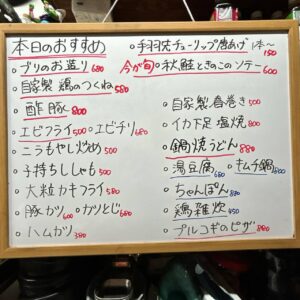 本日のおすすめ
・ブリのお造り 680
・自家製 鶏のつくね 580
・酢豚 800
・エビフライ 500 ・エビチリ 680
・ニラもやし炒め 500
・子持ちししゃも 500
・大粒カキフライ 580
・豚カツ 600 ・ガツとじ 680
・ハムカツ
・手羽先チューリップ唐あげ 1本〜 150
今が旬 ・秋鮭ときのこのソテー 600
・自家製春巻き 500
・イカ下足塩焼 800
・鍋焼うどん 880
・湯豆腐 680 ・キムチ鍋 800
・ちゃんぽん 880
・鶏雑炊 450
・プルコギのピザ 880